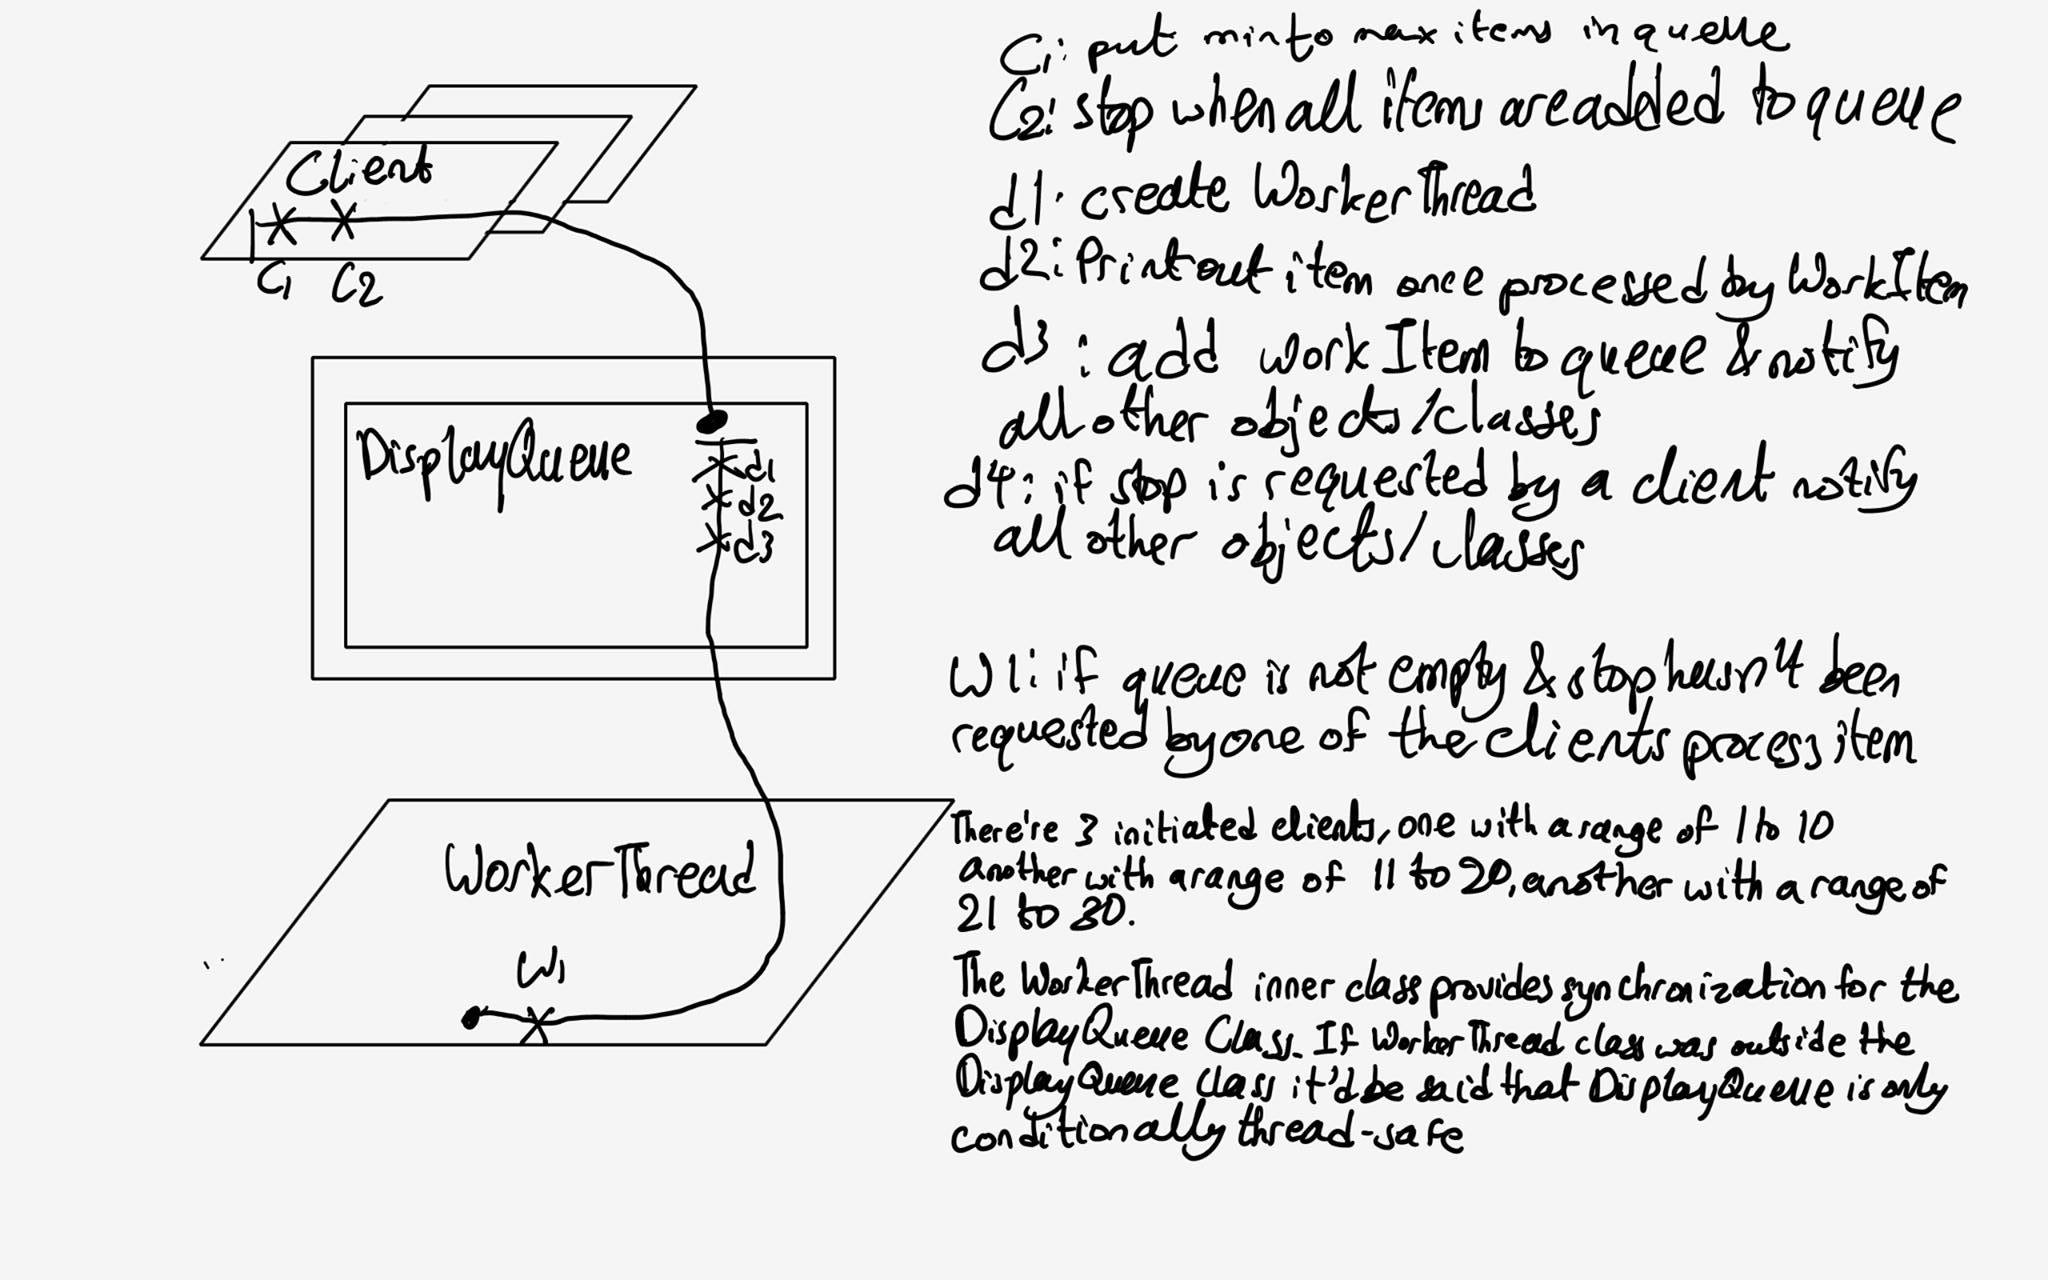 Client
C1 C2
DisplayQueue
d1
d2
d3
WorkerThread
W1
C1: put min to max items in queue
C2: stop when all items are added to queue
d1: create WorkerThread
d2: Print out item once processed by WorkItem
d3: add workItem to queue & notify
all other objects/classes
d4: if stop is requested by a client notify
all other objects/classes
W1: if queue is not empty & stop hasn't been
requested by one of the clients process item
There're 3 initiated clients, one with a range of 1 to 10
another with a range of 11 to 20, another with a range of
21 to 30.
The WorkerThread inner class provides synchronization for the
DisplayQueue Class. If WorkerThread class was outside the
DisplayQueue class it'd be said that DisplayQueue is only
conditionally thread-safe